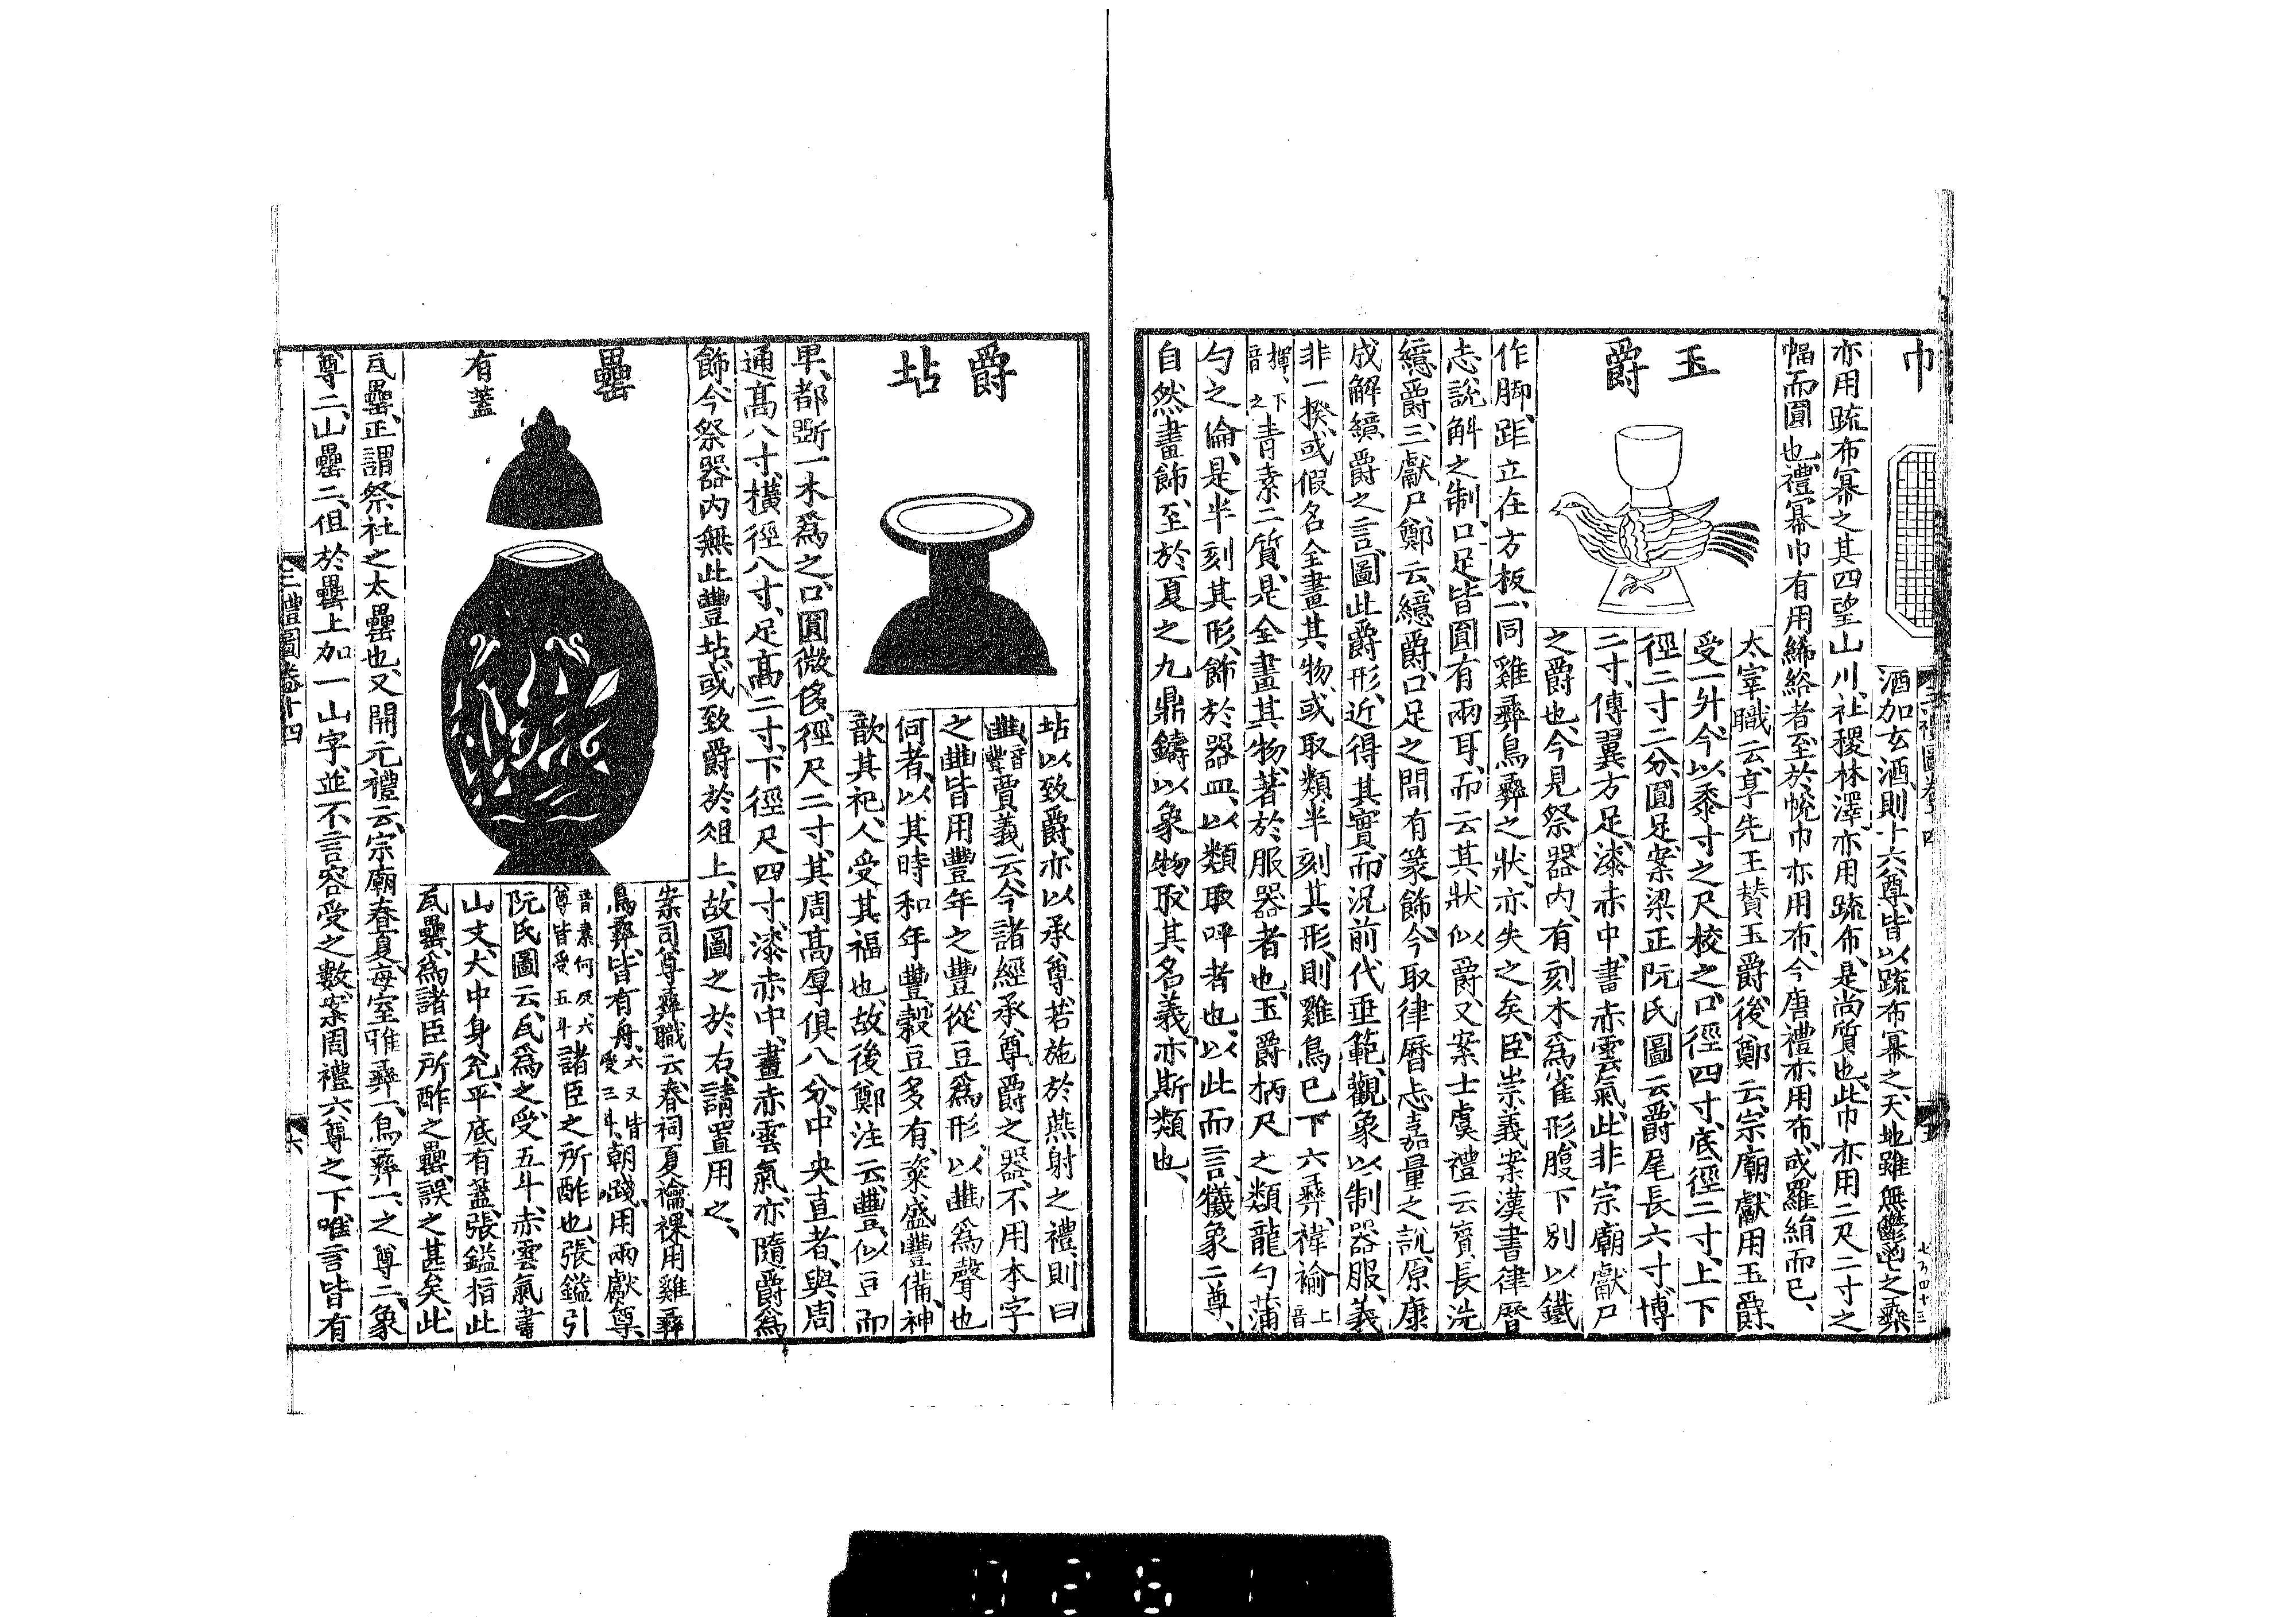 巾
酒加玄酒則十六尊皆以疏布冪之天地雖無鬱鬯之彝
亦用疏布冪之其四望山川社稷林澤亦用疏布是尚質也此巾亦用二尺二寸之
幅而圓也禮冪巾有用綌者至於帨巾亦用布今唐禮亦用布或羅絹而已
玉爵
太宰職云享先王贊玉爵後鄭云宗廟獻用玉爵
受一升今以黍寸之尺校之口徑四寸底徑二寸上下
徑二寸二分圓足案梁正阮氏圖云爵尾長六寸博
二寸傅翼方足漆赤中畫赤雲氣此非宗廟獻尸
之爵也今見祭器內有刻木爲雀形腹下別以鐵
作脚距立在方板一同雞彝鳥彝之狀亦失之矣臣崇義案漢書律曆
志說斛之制口足皆圓有兩耳而云其狀似爵又案士虞禮云賓長洗
繶爵三獻尸鄭云繶爵口足之間有篆飾今取律曆志嘉量之說原康
成解繶爵之言圖此爵形近得其實而況前代垂範觀象以制器服義
非一揆或假名全畫其物或取類半刻其形則雞鳥已下六彝褘褕上音
揮下音之青素二質是全畫其物著於服器者也玉爵柄尺之類龍勺蒲
勺之倫是半刻其形飾於器皿以類取呼者也以此而言犧象二尊
自然畫飾至於夏之九鼎鑄以象物取其名義亦斯類也
爵坫
坫以致爵亦以承尊若施於燕射之禮則曰
豐音豐賈義云今諸經承尊爵之器不用本字
之豐皆用豐年之豐從豆爲形以豐爲聲也
何者以其時和年豐穀豆多有粢盛豐備神
歆其祀人受其福也故後鄭注云豐似豆而
卑都斲一木爲之口圓微侈徑尺二寸其周高厚俱八分中央直者與周
通高八寸橫徑八寸足高二寸下徑尺四寸漆赤中畫赤雲氣亦隨爵爲
飾今祭器內無此豐坫或致爵於俎上故圖之於右請置用之
罍
有蓋
案司尊彝職云春祠夏禴祼用雞彝
鳥彝皆有舟六又皆受三斗朝踐用兩獻尊
音素何反六尊皆受五斗諸臣之所酢也張鎰引
阮氏圖云瓦爲之受五斗赤雲氣畫
山文大中身兊平底有蓋張鎰指此
瓦罍爲諸臣所酢之罍誤之甚矣此
瓦罍正謂祭社之太罍也又開元禮云宗廟春夏每室雞彝一鳥彝一之尊二象
尊二山罍二但於罍上加一山字並不言容受之數案周禮六尊之下唯言皆有
三禮圖卷十四
六